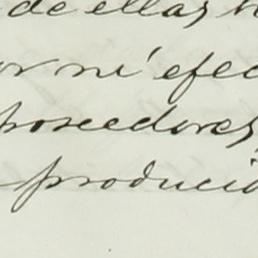 de ellas
or ni efec
poseedores
produci